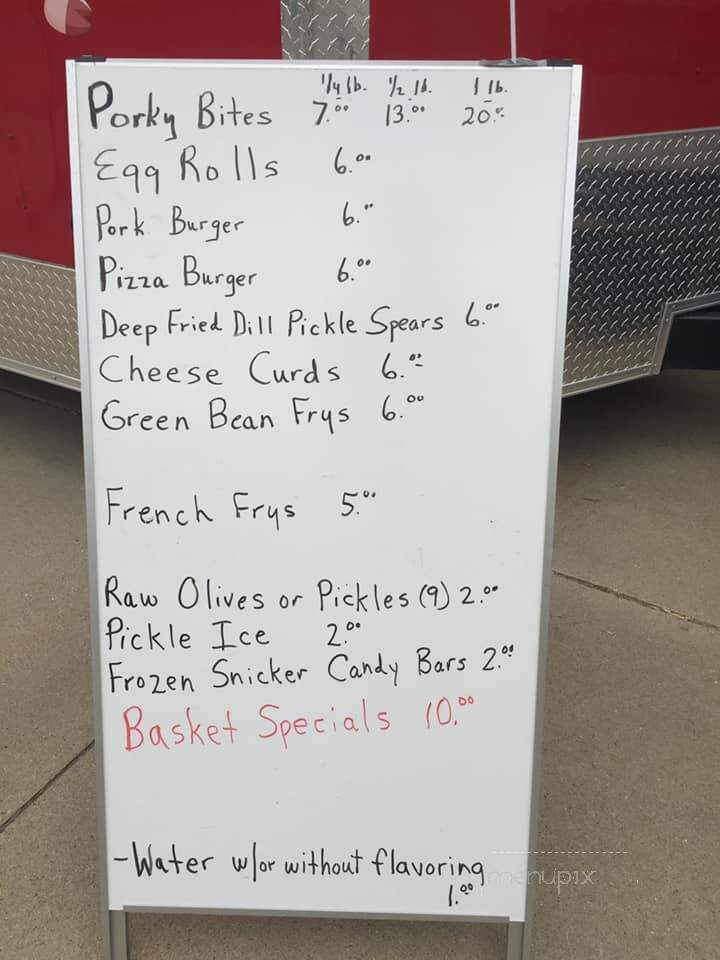 1/4 lb. 1/2 lb. 1 lb.
Porky Bites 7.00 13.00 20.00
Egg Rolls 6.00
Pork Burger 6.00
Pizza Burger 6.00
Deep Fried Dill Pickle Spears 6.00
Cheese Curds 6.00
Green Bean Frys 6.00
French Frys 5.00
Raw Olives or Pickles (9) 2.00
Pickle Ice 2.00
Frozen Snicker Candy Bars 2.00
Basket Specials 10.00
-Water w/or without flavoring
1.00
menupix